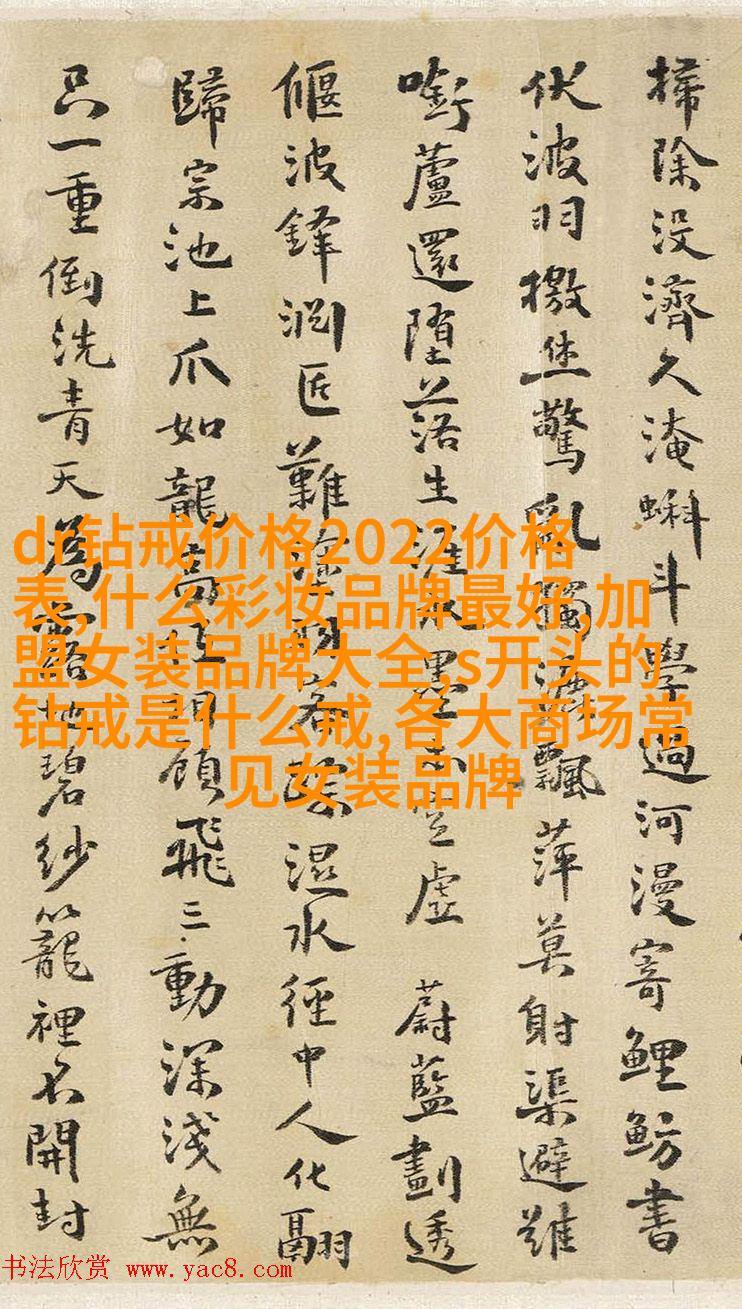 掃除没濟久淹蝌斗學過河漫寄鯉魴書
伏波羽檄驚亂飄萍莫射渠避難
蘆還墮落生涯水墨空虛 蔚藍劃透
偃波鋒難濕水徑中人化翩
歸宗池上爪如龍顧飛三動深淺無
只一重倒洗青天為露地碧紗籠裡不開封
dr钻戒价格2022价格
表,什么彩妆品牌最好,加
盟女装品牌大全,s开头的
钻戒是什么戒,各大商场常
见女装品牌
书法欣赏 www.yac8.com